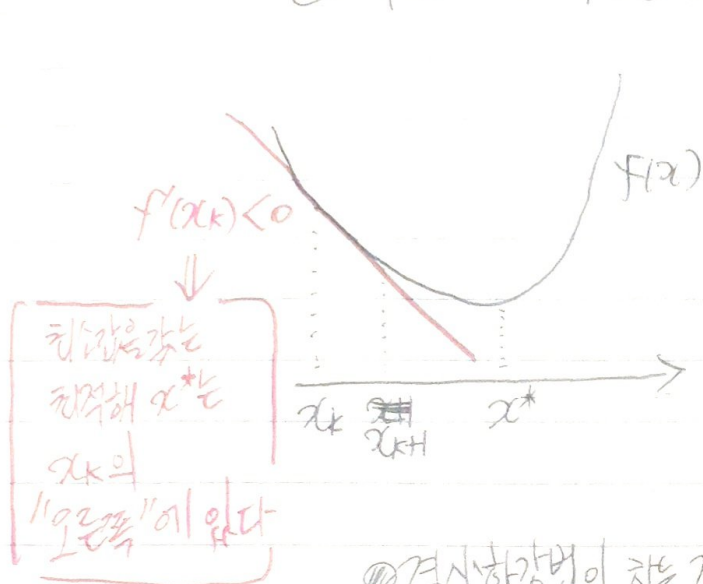 f(x)
f'(xₖ)<0
⇓
최소값을 갖는
최적해 x*는
xₖ의
"오른쪽"에 있다
xₖ xₖ₊₁ x*
경사하강법이 찾는